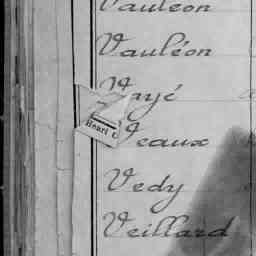 Vauléon
Vauléon
Vayé
Henri
Veaux
Vedy
Veillard